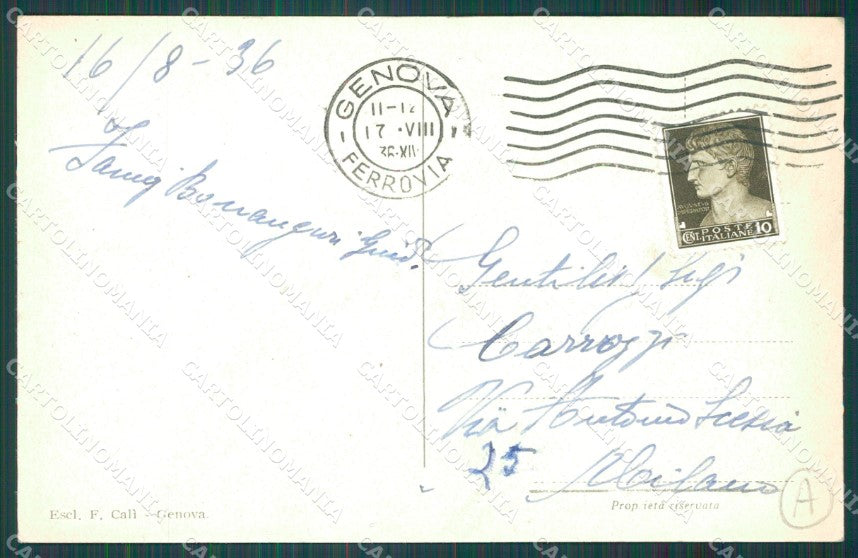 16/8-36
GENOVA
11-12
17 · VIII
36·XIV
FERROVIA
POSTE
ITALIANE
CENT. 10
Gentile
Carrozzi
Via Antonio Scesa
25
Milano
A
Escl. F. Calì - Genova.
Proprietà riservata
CARTOLINOMANIA